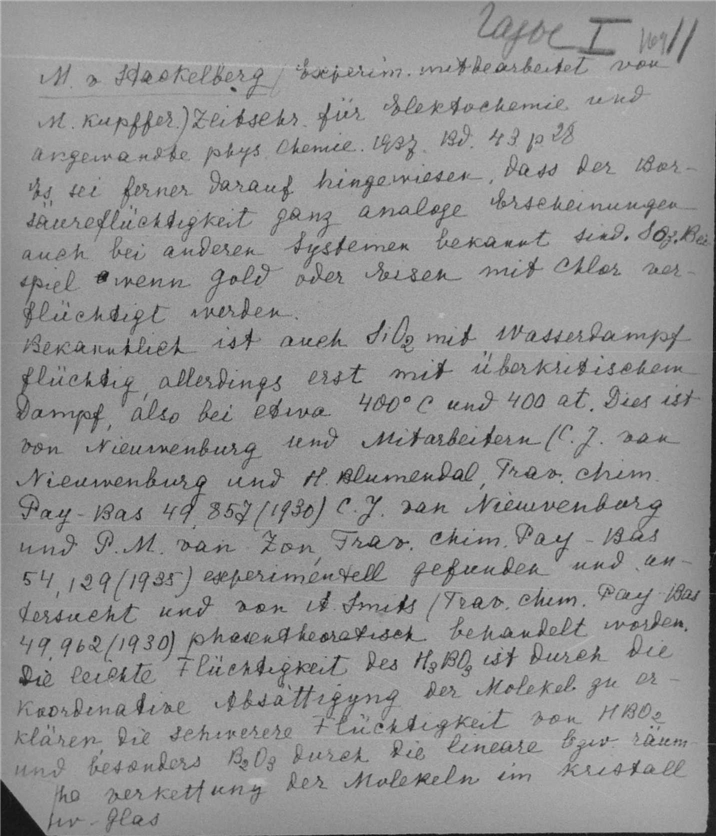 I 11
M. v Stackelberg (Experim. mitbearbeitet von
M. Kupffer.) Zeitschr. für Elektochemie und
angewandte phys. Chemie. 1937. Bd. 43 p 28
Es sei ferner darauf hingewiesen, dass der Bor-
säureflüchtigkeit ganz analoge Erscheinungen
auch bei anderen Systemen bekannt sind. So z. Bei
spiel wenn Gold oder Eisen mit Chlor ver-
flüchtigt werden.
Bekanntlich ist auch SiO2 mit Wasserdampf
flüchtig, allerdings erst mit überkritischem
Dampf, also bei etwa 400° C und 400 at. Dies ist
von Nieuwenburg und Mitarbeitern (C. J. van
Nieuwenburg und H. Blumendal, Trav. chim.
Pay-Bas 49, 857 (1930) C. J. van Nieuvenburg
und P. M. van Zon, Trav. chim. Pay-Bas
54, 129 (1935) experimentell gefunden und un-
tersucht und von A Smits (Trav. chim. Pay-Bas
49, 962 (1930) phasentheoratisch behandelt worden.
Die leichte Flüchtigkeit des H3BO3 ist durch die
koordinative Absättigung der Molekel zu er-
klären, die schwerere Flüchtigkeit von HBO2
und besonders B2O3 durch die lineare bzw. räum-
verkettung der Molekeln im Kristall
Glas